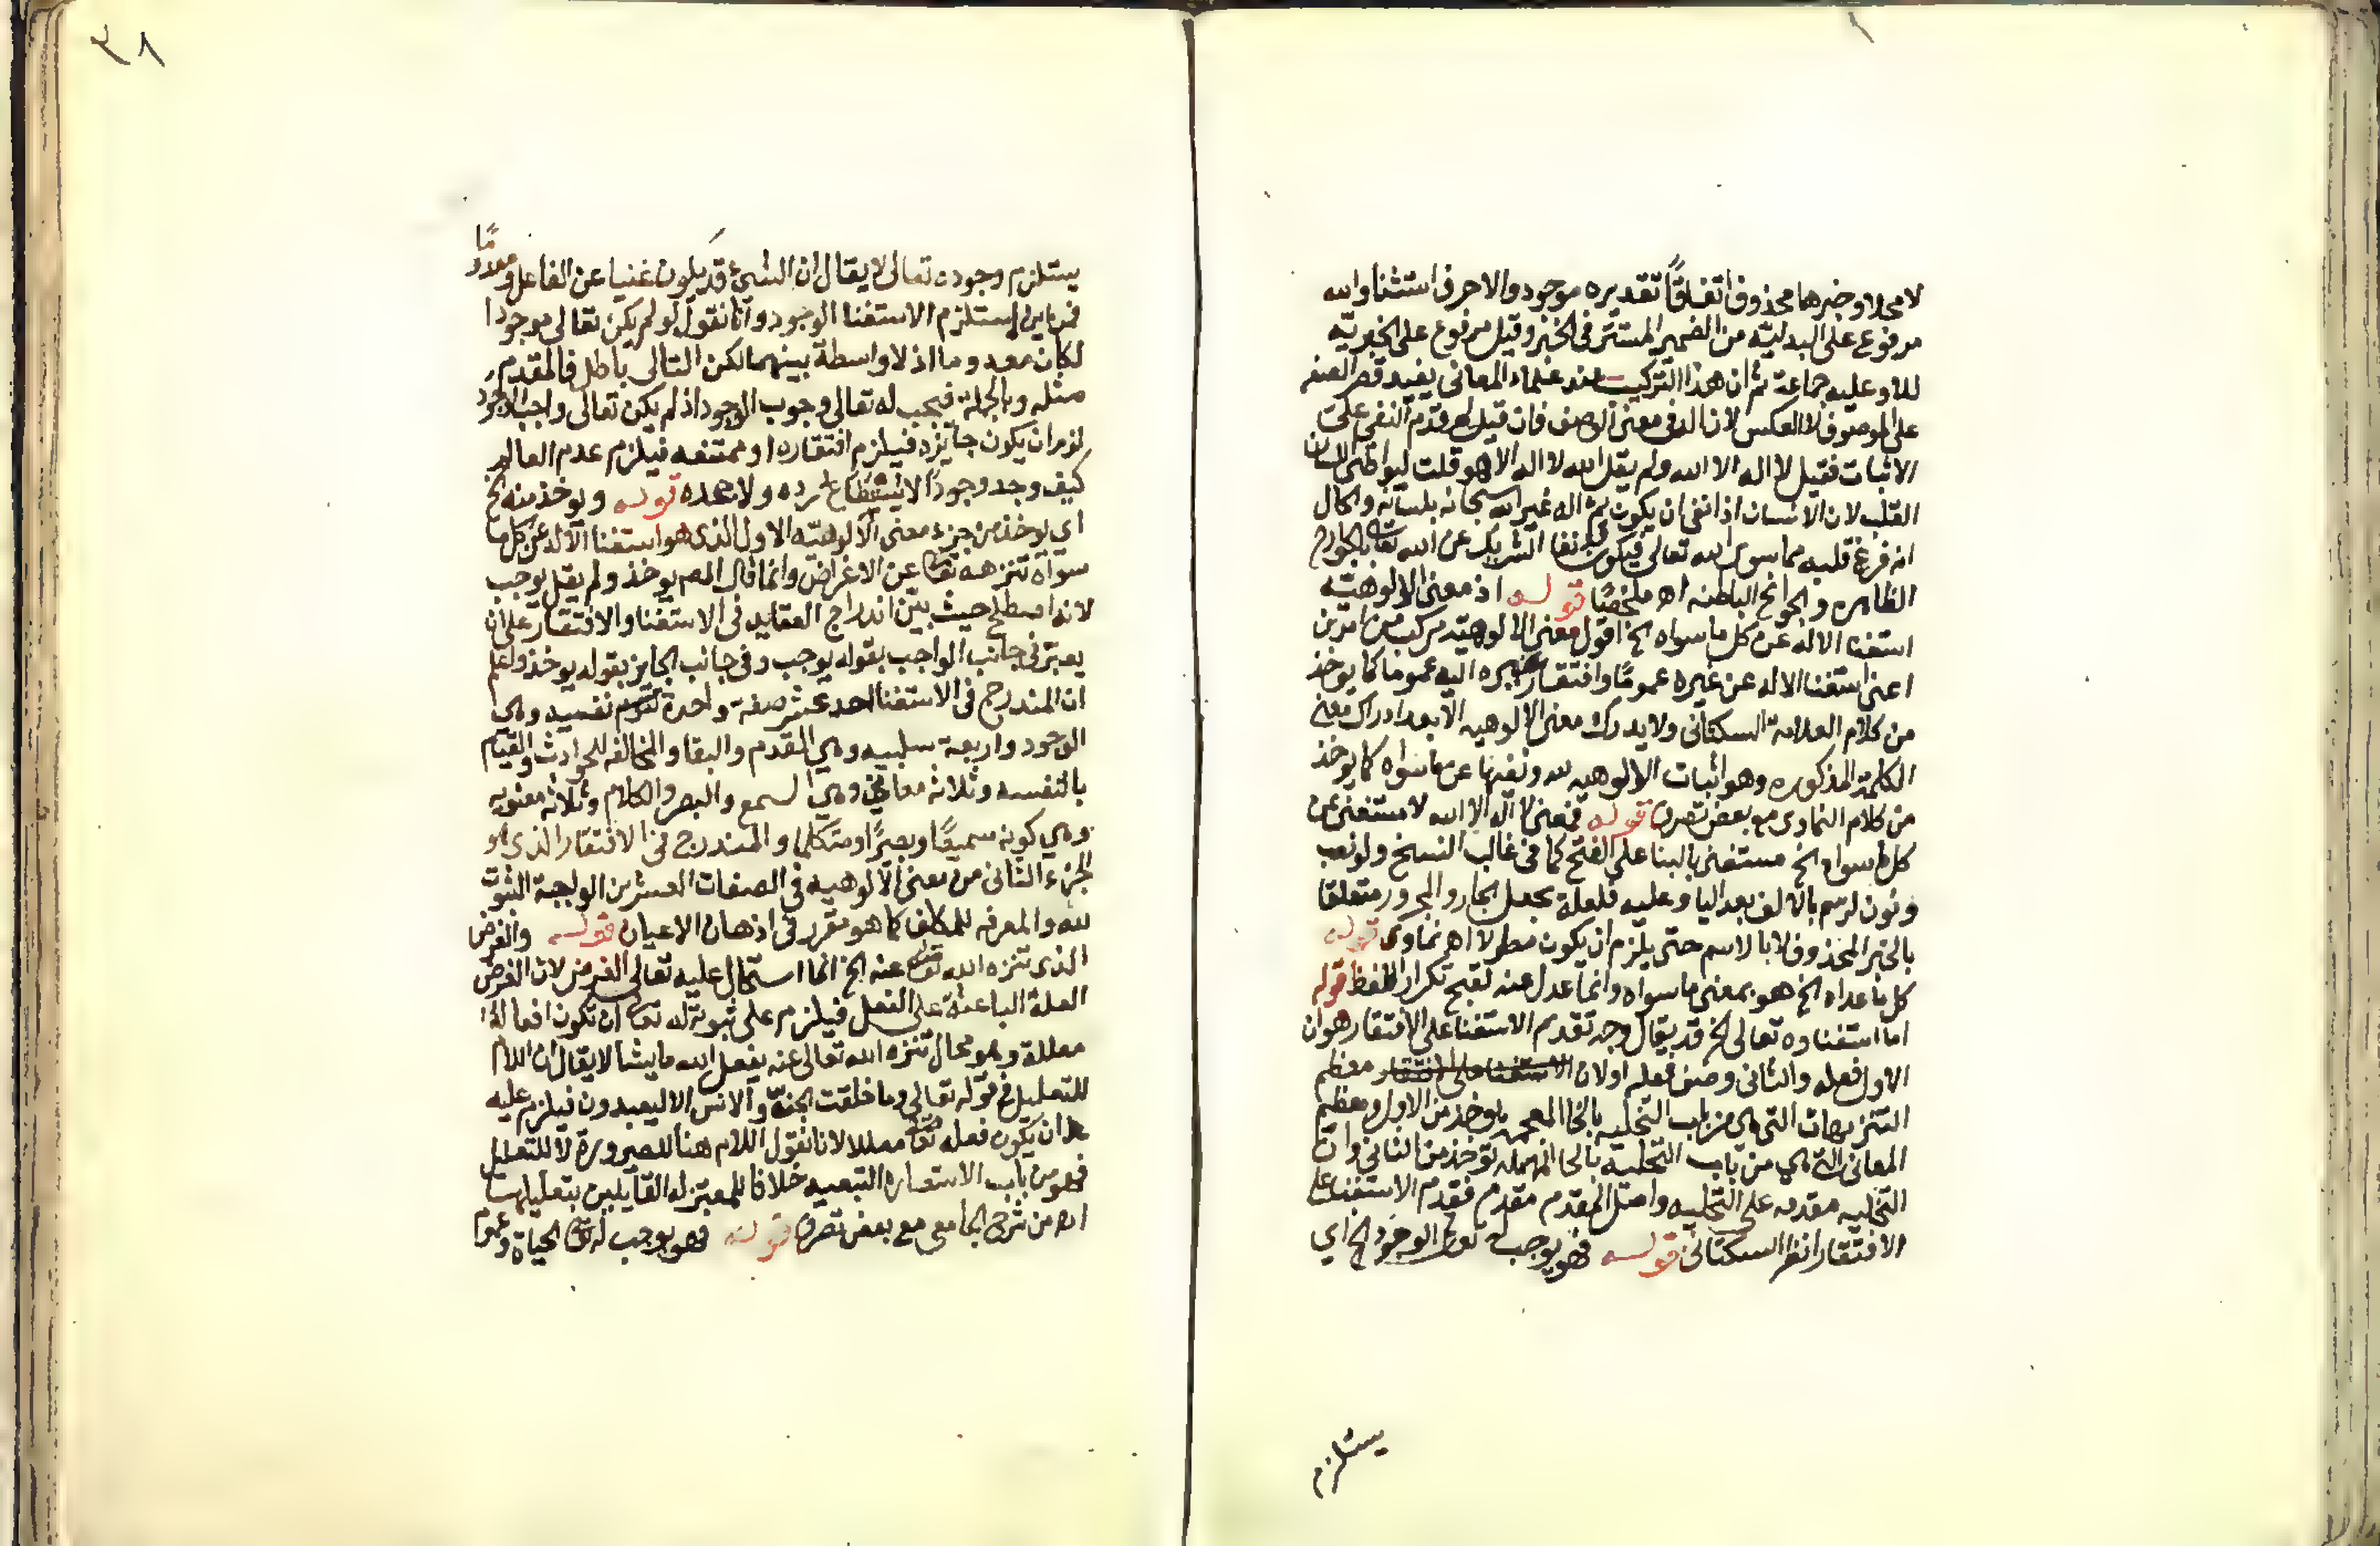 لا محلا وخبرهما محذوف اتفاقًا تقديره موجود والا حرف استثنا والله
مرفوع على البدلية من الضمير المستتر في الخبر وقيل مرفوع على الخبرية
للا وعليه جماعة ثم ان هذا التركيب عند علماء المعاني يفيد قصر الصفه
على الموصوف لا العكس لان اله في معنى الوصف فان قيل لم قدم النفي على
الاثبات فقيل لا اله الا الله ولم يقل الله لا اله الا هو قلت ليواطئ اللسان
القلب لان الانسان اذا نفى ان يكون ثم اله غير الله سبحانه بلسانه والحال
انه فرغ قلبه مما سوى الله تعالى فيكون نفا الشريك عن الله تعا بالجوارح
الظاهره والجوانح الباطنه اهـ ملخصًا قوله اذ معنى الالوهيّه
استغنا الاله عن كل ما سواه الخ اقول معنى الالوهيّه مركب من امرين
اعني استغنا الاله عن غيره عمومًا وافتقار غيره اليه عموما كما يوخذ
من كلام العلامة السكتاني ولا يدرك معنى الالوهيه الا بعد ادراك معنى
الكلمة المذكوره وهو اثبات الالوهيه لله ونفيها عن ما سواه كما يوخذ
من كلام النماوى مع بعض تصرف قوله فمعنى لا اله الا الله لا مستغنى عن
كل ما سواه الخ مستغنى بالبنا على الفتح كما في غالب النسخ ولو نصب
ونون لرسم بالالف بعد اليا وعليه فلعلة بجعل الجار والمجرور متعلقا
بالخبر المحذوف لا بالاسم حتى يلزم ان يكون مطولا اهـ نماوى قوله
كل ما عداه الخ هو بمعنى ما سواه وانما عدل عنه لقبح تكرار اللفظ قوله
اما استغناوه تعالى الخ قد يقال وجه تقدم الاستغنا على الافتقار هو ان
الاول فعله والثاني وصف فعله اولان الاستغنا على الافتقار معظم
التنزيهات التي هي من باب التخليه بالخا المعجمه يوخذ من الاول ومعظم
المعاني التي هي من باب التحلية بالحا المهمله توخذ من الثاني وان
التخليه مقدمه على التحليه واصل المقدم مقدم فقدم الاستغنا على
الافتقار انظر السكتاني قوله فهو يوجب له تعالى الوجود الخ اي
يستلزم
٣٨
يستلزم وجوده تعالى لا يقال ان الشيء قد يكون غنيا عن الفاعل ومعدومًا
فمن اين استلزم الاستغنا الوجود وانا نقول لو لم يكن تعالى موجودا
لكان معدوما اذ لا واسطة بينهما لكن التالى باطل فالمقدم
مثله وبالجملة فيجب له تعالى وجوب الوجود اذ لم يكن تعالى واجب الوجود
لزم ان يكون جايزه فيلزم افتقاره او ممتنعه فيلزم عدم العالم
كيف وجد وجودًا لا يستطاع رده ولا جحده قوله ويوخذ منه الخ
اى يوخذ من جزء معنى الالوهيّه الاول الذى هو استغنا الاله عن كل ما
سواه تنزهه تعا عن الاغراض وانما قال المص يوخذ ولم يقل يوجب
لانه اصطلح حيث بيّن اندراج العقايد في الاستغنا والافتقار على ان
يعبّر في جانب الواجب بقوله يوجب وفي جانب الجايز بقوله يوخذ واعلم
ان المندرج في الاستغنا احد عشر صفة واحدة نفسيه وهي
الوجود واربعة سلبيه وهي القدم والبقا والمخالفه للحوادث والقيام
بالنفسه وثلاثه معاني وهي السمع والبصر والكلام وثلاثه معنويه
وهي كونه سميعًا وبصيرًا ومتكلما والمندرج في الافتقار الذي هو
الجزء الثاني من معنى الالوهيه في الصفات العشرين الواجبة الثبوت
لله والمعرفه للمكلف كما هو مقرر في اذهان الاعيان قوله والغرض
الذى تنزه الله تعالى عنه الخ انما استحال عليه تعالى الغرض لان الغرض
العلة الباعثة على الفعل فيلزم على ثبوته له تعا ان تكون افعاله
معللة وهو محال تنزه الله تعالى عنه يفعل الله ما يشا لا يقال ان اللام
للتعليل في قوله تعالى وما خلقت الجنّ والانس الا ليعبدون فيلزم عليه
ان يكون فعله تعا معللا لانا نقول اللام هنا للصيرورة لا للتعليل
فهو من باب الاستعاره التبعيه خلافا للمعتزله القايلين بتعليلها
اهـ من شرح الجامعى مع بعض تصرف قوله فهو يوجب له تعا الحياة وعموم